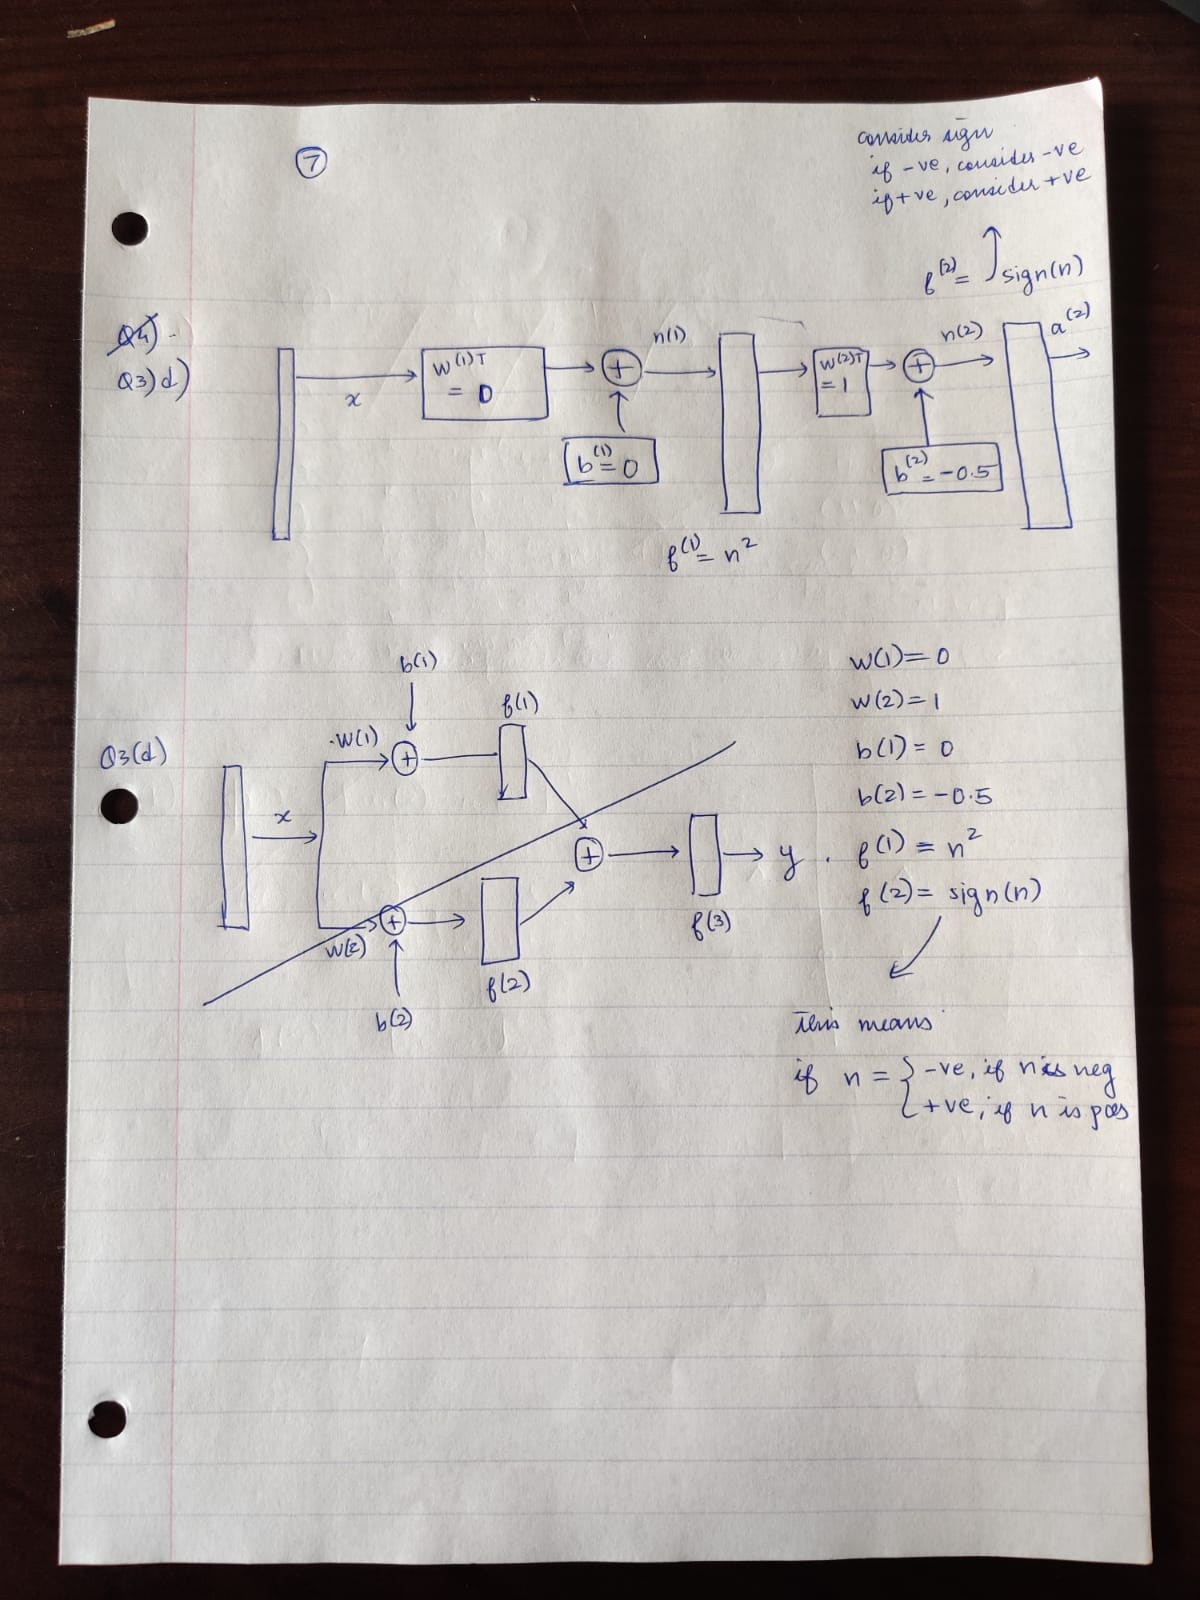 7
consider sign
if -ve, consider -ve
if +ve, consider +ve
f(2) = sign(n)
Q4)
Q3)d)
x
W(1)T
= 0
+
n(1)
b(1) = 0
f(1) = n²
W(2)T
= 1
+
n(2)
b(2) = -0.5
a(2)
Q3(d)
x
W(1)
b(1)
+
f(1)
W(2)
+
b(2)
f(2)
+
f(3)
y
W(1) = 0
W(2) = 1
b(1) = 0
b(2) = -0.5
f(1) = n²
f(2) = sign(n)
This means
if n = { -ve, if n is neg
+ve, if n is pos